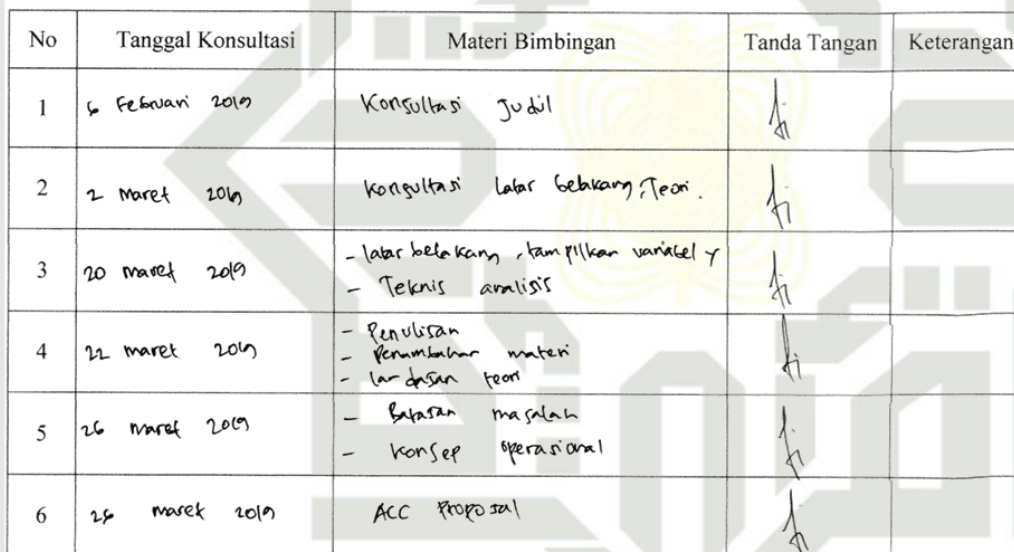 No Tanggal Konsultasi Materi Bimbingan Tanda Tangan Keterangan
1 6 Februari 2019 Konsultasi Judul
2 2 Maret 2019 Konsultasi latar belakang, Teori.
3 20 maret 2019 - latar belakang, tampilkan variabel Y
- Teknis analisis
4 22 maret 2019 - Penulisan
- Penambahan materi
- landasan teori
5 26 maret 2019 - Batasan masalah
- Konsep operasional
6 maret 2019 ACC Proposal